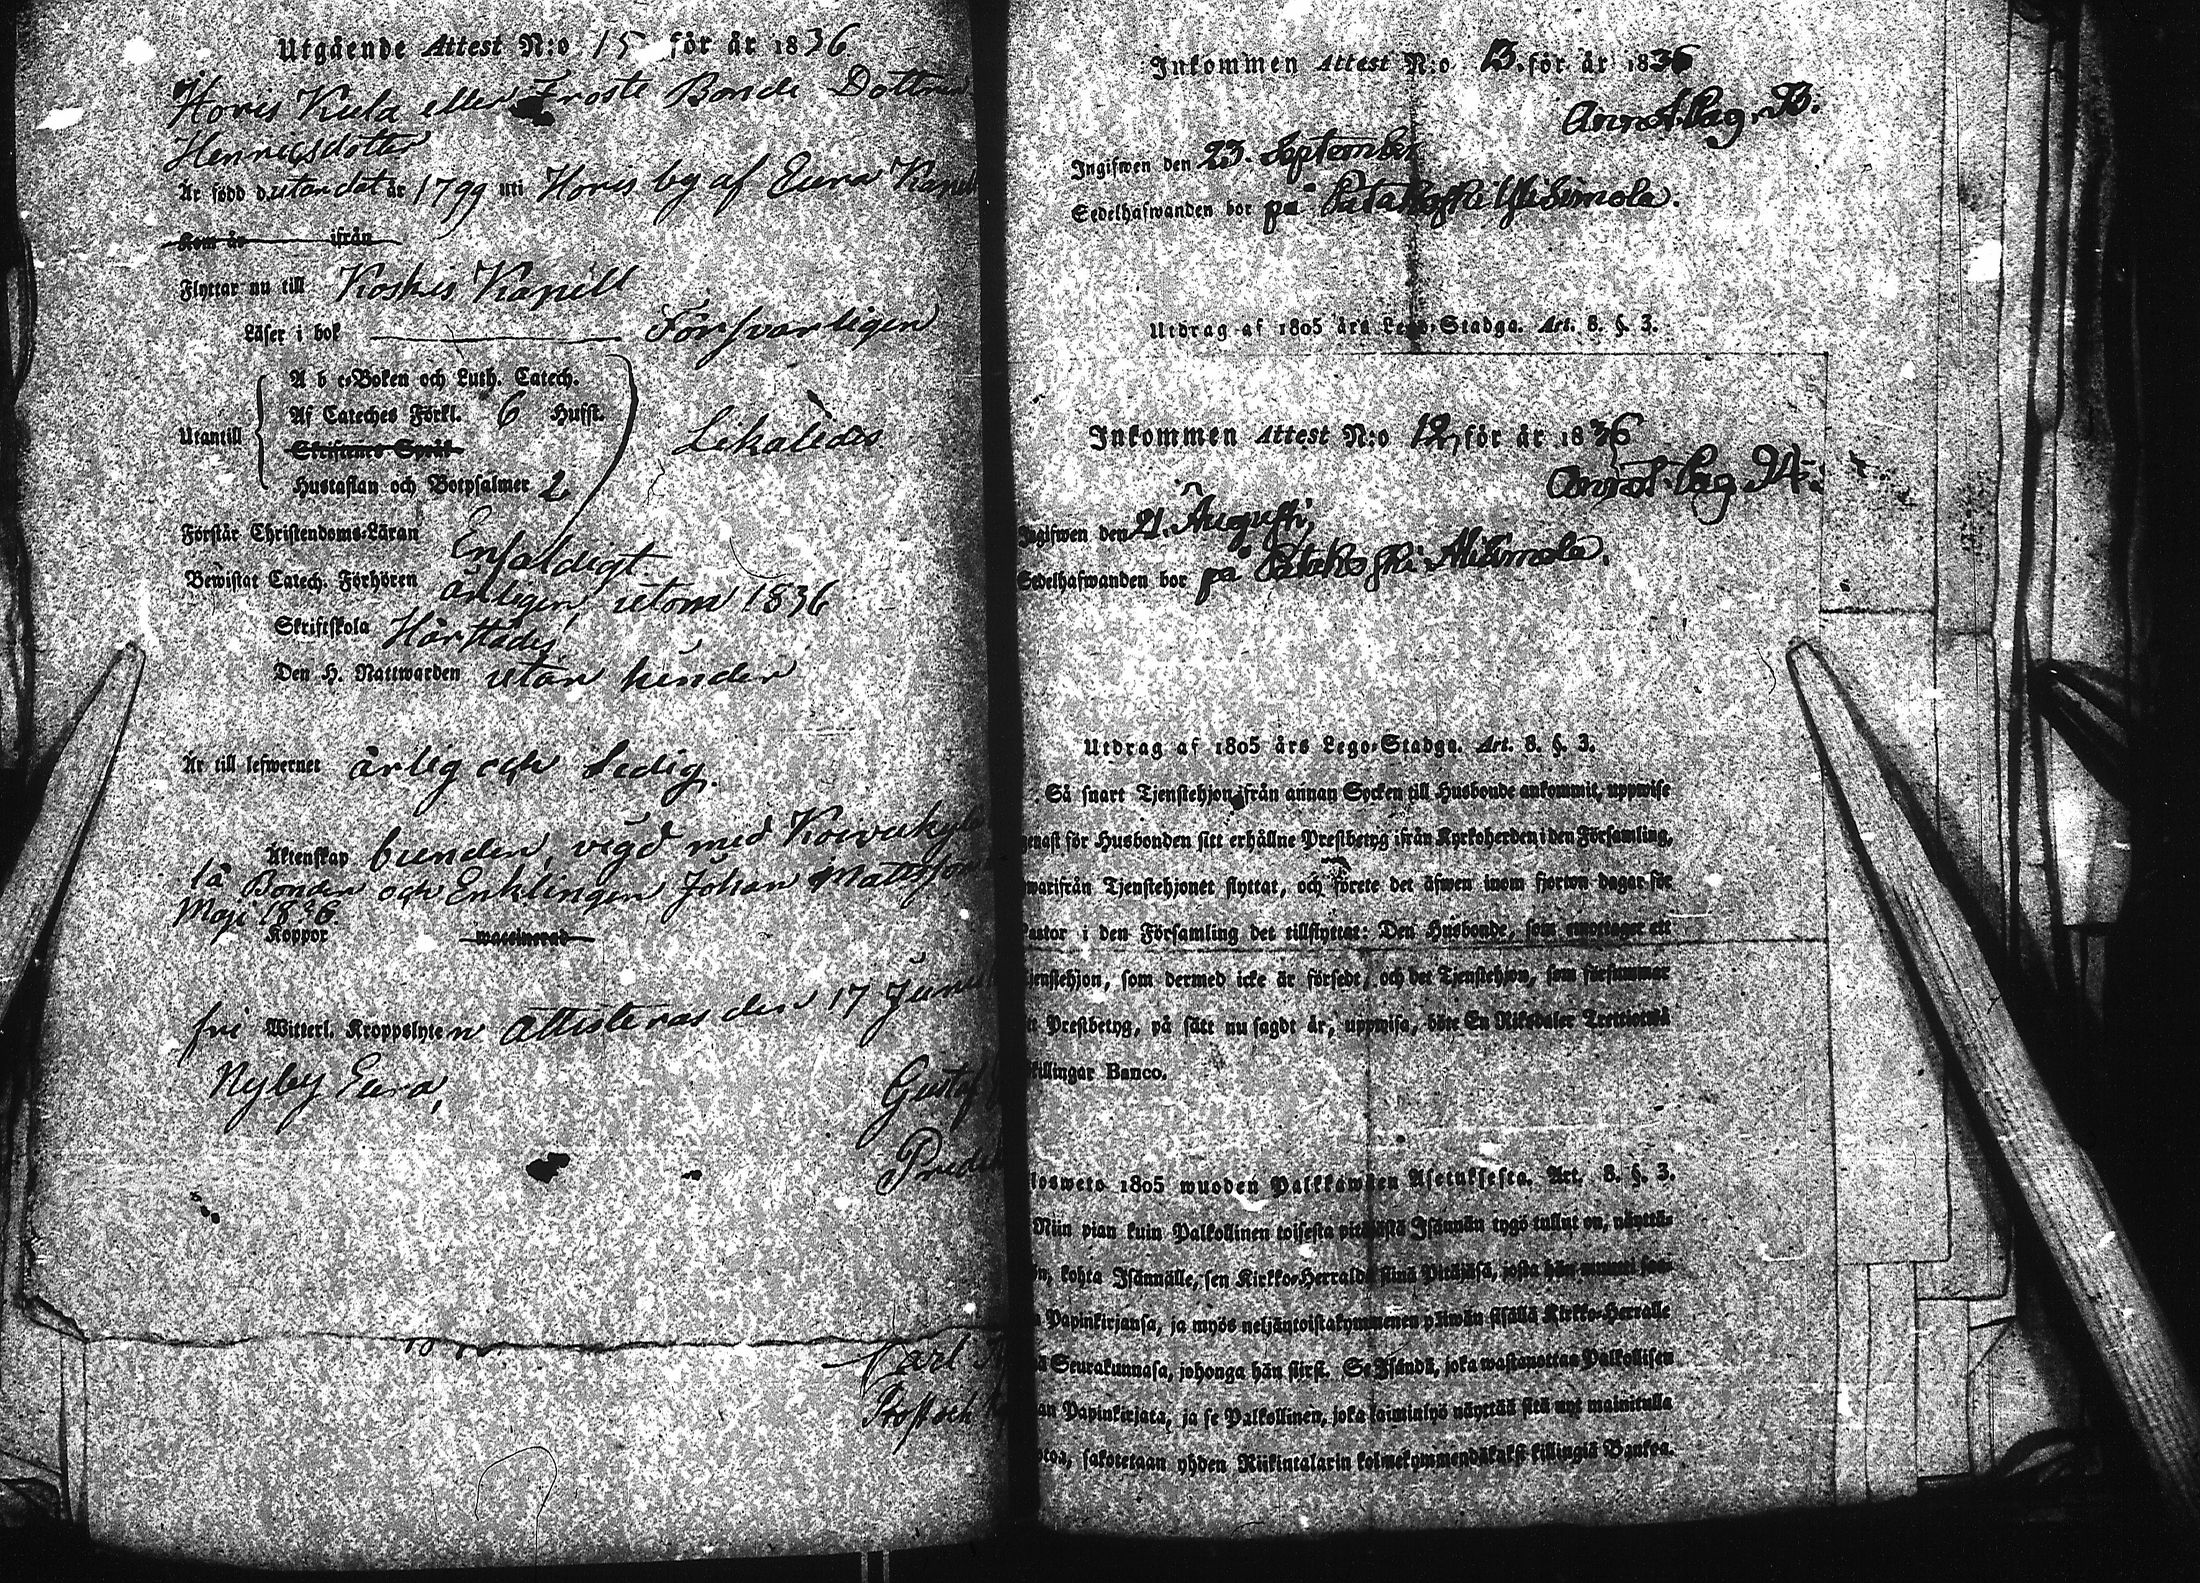 Utgående Attest N:o 15 för år 1836
Hovis Kula eller Froste Bonde Dottren
Henricsdotter
Är född d. utan dat år 1799 uti Hovis by af Eura Kapell
Kom år ifrån
Flyttar nu till Koskis Kapell
Läser i bok Försvarligen
A b c-Boken och Luth. Catech.
Af Cateches Förkl. 6 Hufst.
Utantill Likaledes
Skriftenes Språk
Hustaflan och Botpsalmer 2
Förstår Christendoms-Läran Enfaldigt
Bewistat Catech. Förhören årligen, utom 1836
Skriftskola
Den H. Nattwarden utan hinder
Är till lefwernet ärlig och Ledig.
Äktenskap bunden, vigd med
Bonden och Enklingen Johan Mattsson
Maji 1836.
Koppor waccinerad
fri Witterl. Kroppslyten attesteras den 17 Junii
Nyby Eura,
Gustaf
Carl
Prost och
Inkommen Attest N:o 13. för år 1836
Annot. Pag. 93.
Ingifwen den 23. September
Sedelhafwanden bor på Patakoski Yli Simola.
Utdrag af 1805 års Lego-Stadga. Art. 8. §. 3.
Inkommen Attest N:o 12, för år 1836
Annot. Pag 94.
Ingifwen den 21. Augusti,
Sedelhafwanden bor på Patakoski Ali Simola.
Utdrag af 1805 års Lego-Stadga. Art. 8. §. 3.
Så snart Tjenstehjon ifrån annan Socken till Husbonde ankommit, uppwise
genast för Husbonden sitt erhållne Prestbetyg ifrån Kyrkoherden i den Församling,
warifrån Tjenstehjonet flyttat, och förete det äfwen inom fjorton dagar för
Pastor i den Församling det tillflyttat: Den Husbonde, som emottager ett
tjenstehjon, som dermed icke är försedt, och det Tjenstehjon, som försummar
Prestbetyg, på sätt nu sagdt är, uppwisa, böte En Riksdaler Trettiotwå
skillingar Banco.
Ulosweto 1805 wuoden Palkkawäen Asetuksesta. Art. 8. §. 3.
Niin pian kuin Palkollinen toisesta pitäjästä Isännän tygö tullut on, näyttä-
kohta Isännälle, sen Kirkko-Herralda siinä Pitäjäsä, josta hän
Papinkirjansa, ja myös neljäntoistakymmenen päiwän sisällä Kirkko-Herralle
Seurakunnasa, johonga hän siirst. Se Isändä, joka wastanottaa Palkollisen
Papinkirjata, ja se Palkollinen, joka laiminlyö näyttää sitä nyt mainitulla
sakotetaan yhden Riikintalarin kolmekymmendäkaksi killingiä Bankoa.